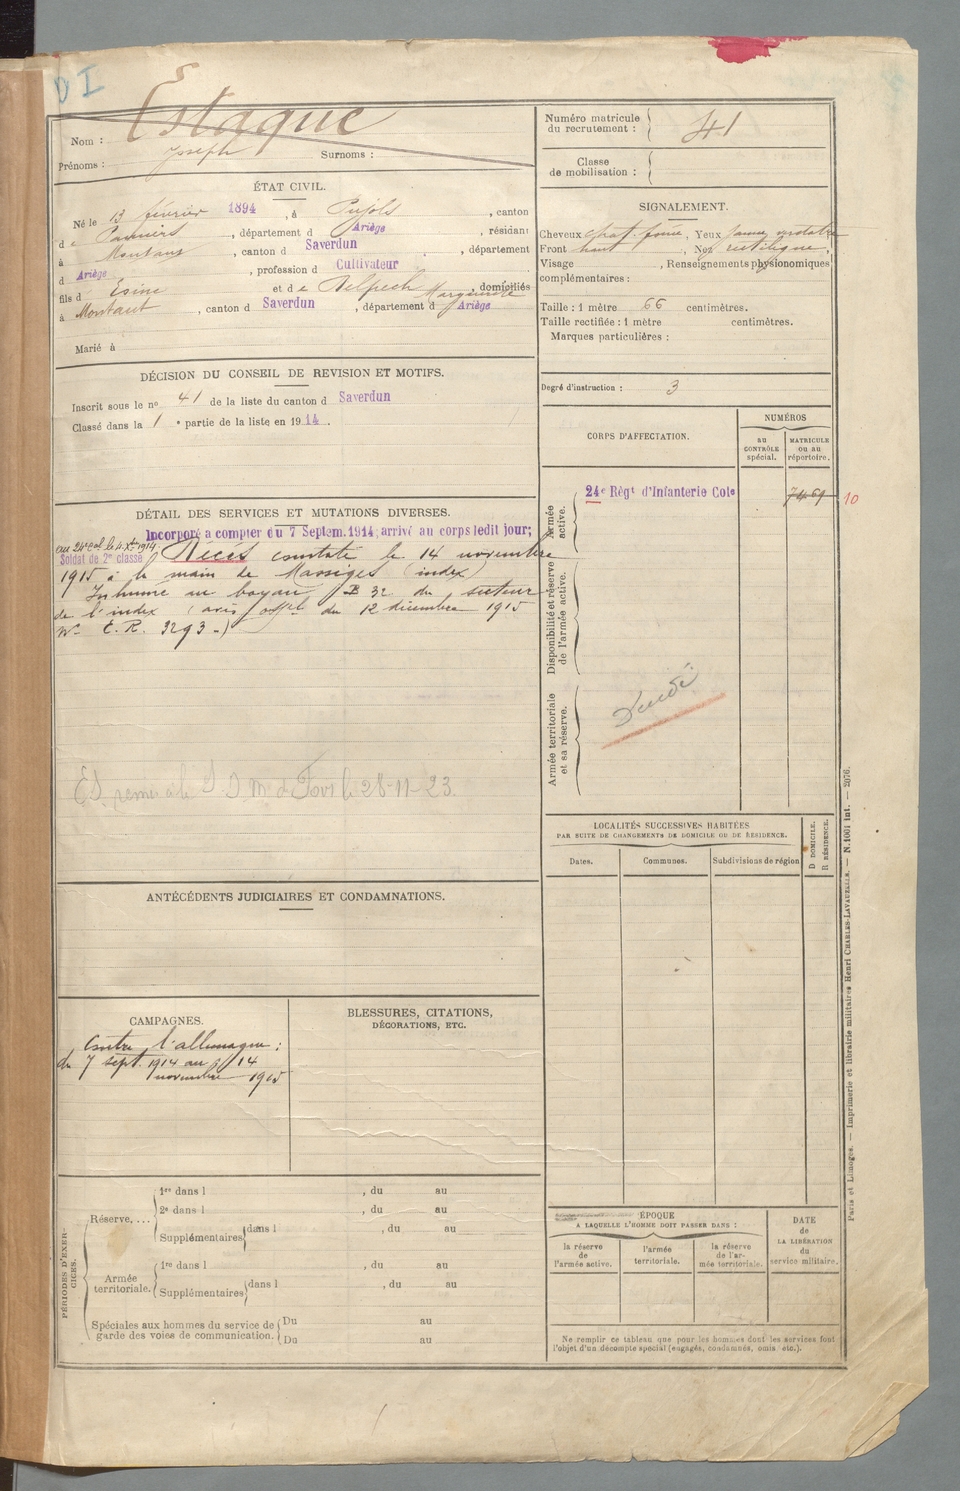 D I
Nom : Estaque
Prénoms : Joseph Surnoms :
Numéro matricule
du recrutement : 41
Classe
de mobilisation :
ÉTAT CIVIL.
Né le 13 février 1894, à Pujols, canton
de Pamiers, département d Ariège, résidant
à Montaut, canton d Saverdun, département
d Ariège, profession d Cultivateur
fils d et de Delpech Marguerite, domiciliés
à Montaut, canton d Saverdun, département d Ariège
Marié à
SIGNALEMENT.
Cheveux chat. foncé, Yeux
Front haut, Nez rectiligne,
Visage , Renseignements physionomiques
complémentaires :
Taille : 1 mètre 66 centimètres.
Taille rectifiée : 1 mètre centimètres.
Marques particulières :
Degré d'instruction : 3
DÉCISION DU CONSEIL DE REVISION ET MOTIFS.
Inscrit sous le no 41 de la liste du canton d Saverdun
Classé dans la 1 e partie de la liste en 1914.
CORPS D'AFFECTATION.
NUMÉROS
au
CONTRÔLE
spécial.
MATRICULE
ou au
répertoire.
Armée
active.
24e Régt d'Infanterie Cole
7469 10
Disponibilité et réserve
de l'armée active.
Armée territoriale
et sa réserve.
DÉTAIL DES SERVICES ET MUTATIONS DIVERSES.
Incorporé à compter du 7 Septem. 1914, arrivé au corps ledit jour;
au 24e col. le 4 Xbre 1914
Soldat de 2e classe Décès constaté le 14 novembre
1915 à la main de Massiges (index)
Inhumé au boyau P 32 du secteur
de l'index (avis offel du 12 décembre 1915
No C.R. 3293.)
remis à le de Foix le 28-11-23.
LOCALITÉS SUCCESSIVES HABITÉES
PAR SUITE DE CHANGEMENTS DE DOMICILE OU DE RÉSIDENCE.
Dates. Communes. Subdivisions de région
D DOMICILE.
R RÉSIDENCE.
ANTÉCÉDENTS JUDICIAIRES ET CONDAMNATIONS.
CAMPAGNES.
Contre l'allemagne :
du 7 sept. 1914 au 14
novembre 1915
BLESSURES, CITATIONS,
DÉCORATIONS, ETC.
PÉRIODES D'EXER-
CICES.
Réserve,...
1re dans l , du au
2e dans l , du au
Supplémentaires dans l , du au
Armée
territoriale.
1re dans l , du au
Supplémentaires dans l , du au
Spéciales aux hommes du service de
garde des voies de communication.
Du au
Du au
ÉPOQUE
A LAQUELLE L'HOMME DOIT PASSER DANS :
la réserve
de
l'armée active.
l'armée
territoriale.
la réserve
de l'ar-
mée territoriale.
DATE
de
LA LIBÉRATION
du
service militaire.
Ne remplir ce tableau que pour les hommes dont les services font
l'objet d'un décompte spécial (engagés, condamnés, omis etc.).
Paris et Limoges. — Imprimerie et librairie militaires Henri CHARLES-LAVAUZELLE. — N. 1001 int. — 2076.